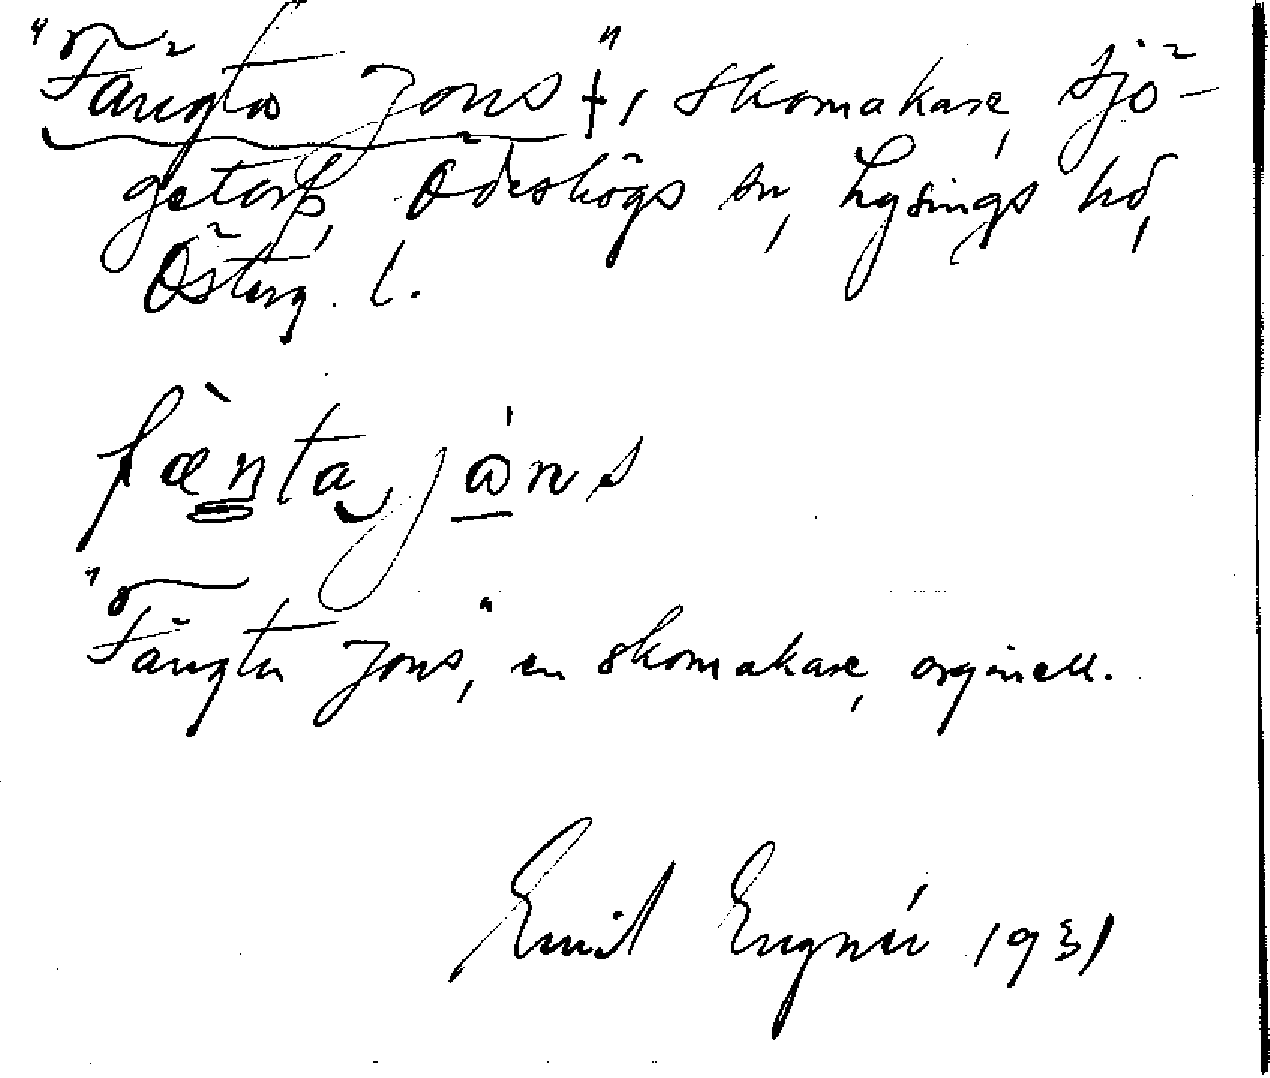 "Fängta Jons" †, skomakare, Sjö-
getorp, Ödeshögs sn, Lysings hd,
Österg. l.
fænta jons
"Fängta Jons", en skomakare, orginell.
Emil Engnér 1931